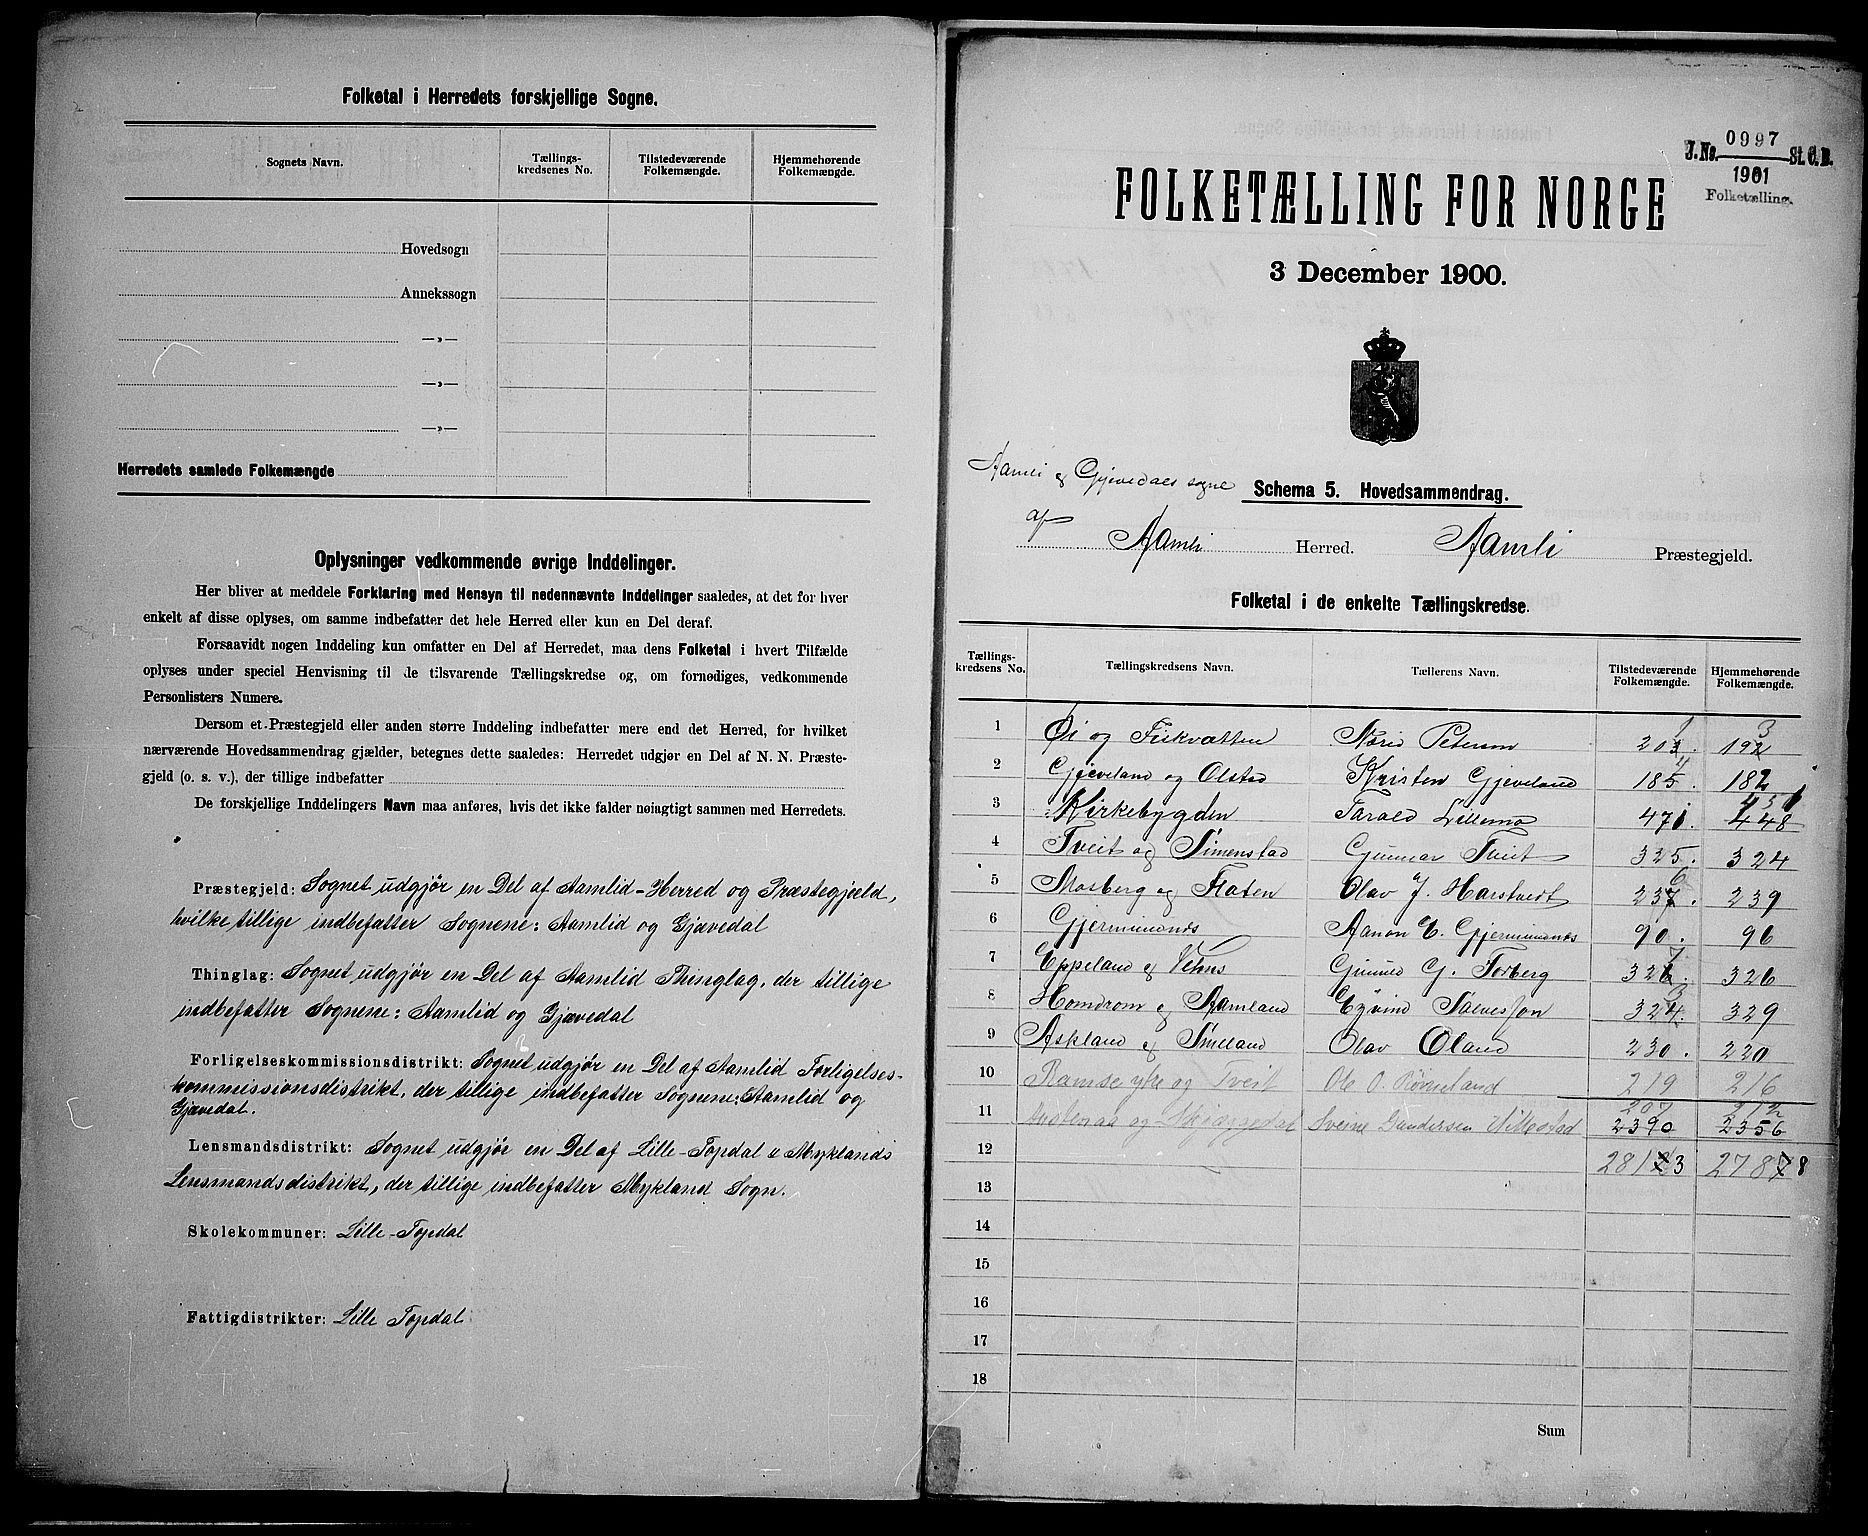 Folketal i Herredets forskjellige Sogne.
Sognets Navn. Tællings-kredsenes No. Tilstedeværende Folkemængde. Hjemmehørende Folkemængde.
Hovedsogn
Annekssogn
—»—
—»—
—»—
Herredets samlede Folkemængde
Oplysninger vedkommende øvrige Inddelinger.
Her bliver at meddele Forklaring med Hensyn til nedennævnte Inddelinger saaledes, at det for hver
enkelt af disse oplyses, om samme indbefatter det hele Herred eller kun en Del deraf.
Forsaavidt nogen Inddeling kun omfatter en Del af Herredet, maa dens Folketal i hvert Tilfælde
oplyses under speciel Henvisning til de tilsvarende Tællingskredse og, om fornødiges, vedkommende
Personlisters Numere.
Dersom et Præstegjeld eller anden større Inddeling indbefatter mere end det Herred, for hvilket
nærværende Hovedsammendrag gjælder, betegnes dette saaledes: Herredet udgjør en Del af N. N. Præste-
gjeld (o. s. v.), der tillige indbefatter
De forskjellige Inddelingers Navn maa anføres, hvis det ikke falder nøiagtigt sammen med Herredets.
Præstegjeld: Sognet udgjør en Del af Aamlid-Herred og Præstegjeld,
hvilke tillige indbefatter Sognene: Aamlid og Gjævedal
Thinglag: Sognet udgjør en Del af Aamlid Thinglag, der tillige
indbefatter Sognene: Aamlid og Gjævedal
Forligelseskommissionsdistrikt: Sognet udgjør en Del af Aamlid Forligelses-
kommissionsdistrikt, der tillige indbefatter Sognene: Aamlid og
Gjævedal.
Lensmandsdistrikt: Sognet udgjør en Del af Lille-Topdal & Myklands
Lensmandsdistrikt, der tillige indbefatter Mykland Sogn.
Skolekommuner: Lille-Topdal
Fattigdistrikter: Lille Topdal
J. No. 0997 St. C. B.
1901
Folketælling.
FOLKETÆLLING FOR NORGE
3 December 1900.
Aamli & Gjevedals sogne Schema 5. Hovedsammendrag.
af Aamli Herred. Aamli Præstegjeld.
Folketal i de enkelte Tællingskredse.
Tællings-kredsens No. Tællingskredsens Navn. Tællerens Navn. Tilstedeværende Folkemængde. Hjemmehørende Folkemængde.
1 Øi og Fiskvatten Peterson
2 Gjeveland og Olstad Kristen Gjeveland 185 182
3 Kirkebygden Tarald Lillemo 471 448
4 Tveit og Simenstad Gunnar Tveit 325. 324
5 Mosberg og Flaten Olav J. Harstveit 237. 239
6 Gjermundnes Aanon E. Gjermundnes 90. 96
7 Eppeland & Vehus G. Torberg 326
8 Homdrom og Aamland 324. 329
9 Askland & Smeland Olav Oland 230. 220
10 Ramse ytre og Tveit Ole O. 219 216
207 212
11 og 2390 2356
12 2787 8
13
14
15
16
17
18
Sum